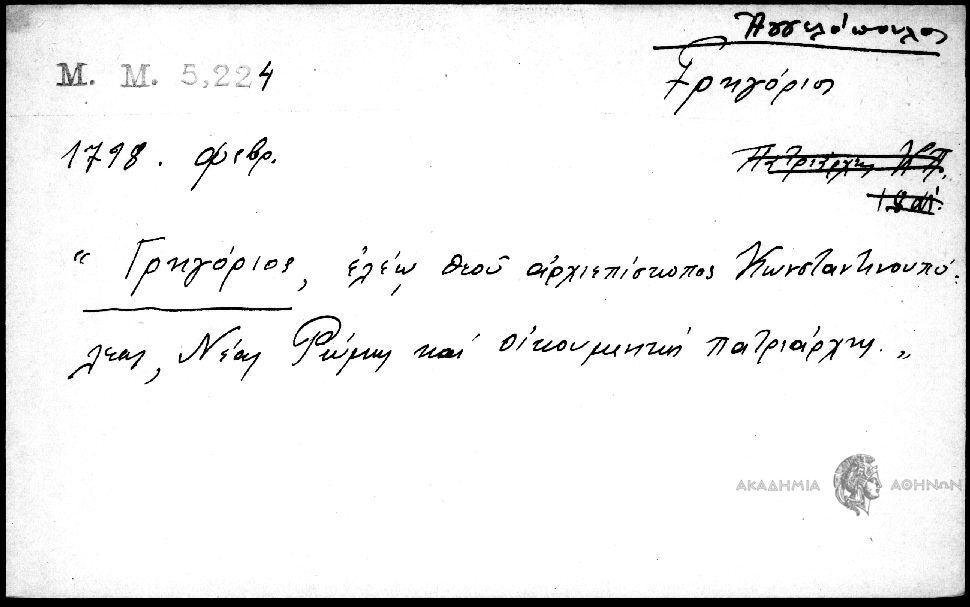 Ἀγγελόπουλος
Μ. Μ. 5,224
Γρηγόριος
1798. Φεβρ.
Πατριάρχης Κ.Π.
"Γρηγόριος, ἐλέῳ θεοῦ ἀρχιεπίσκοπος Κωνσταντινουπό-
λεως, Νέας Ρώμης καί οἰκουμενικός πατριάρχης."
ΑΚΑΔΗΜΙΑ ΑΘΗΝΩΝ